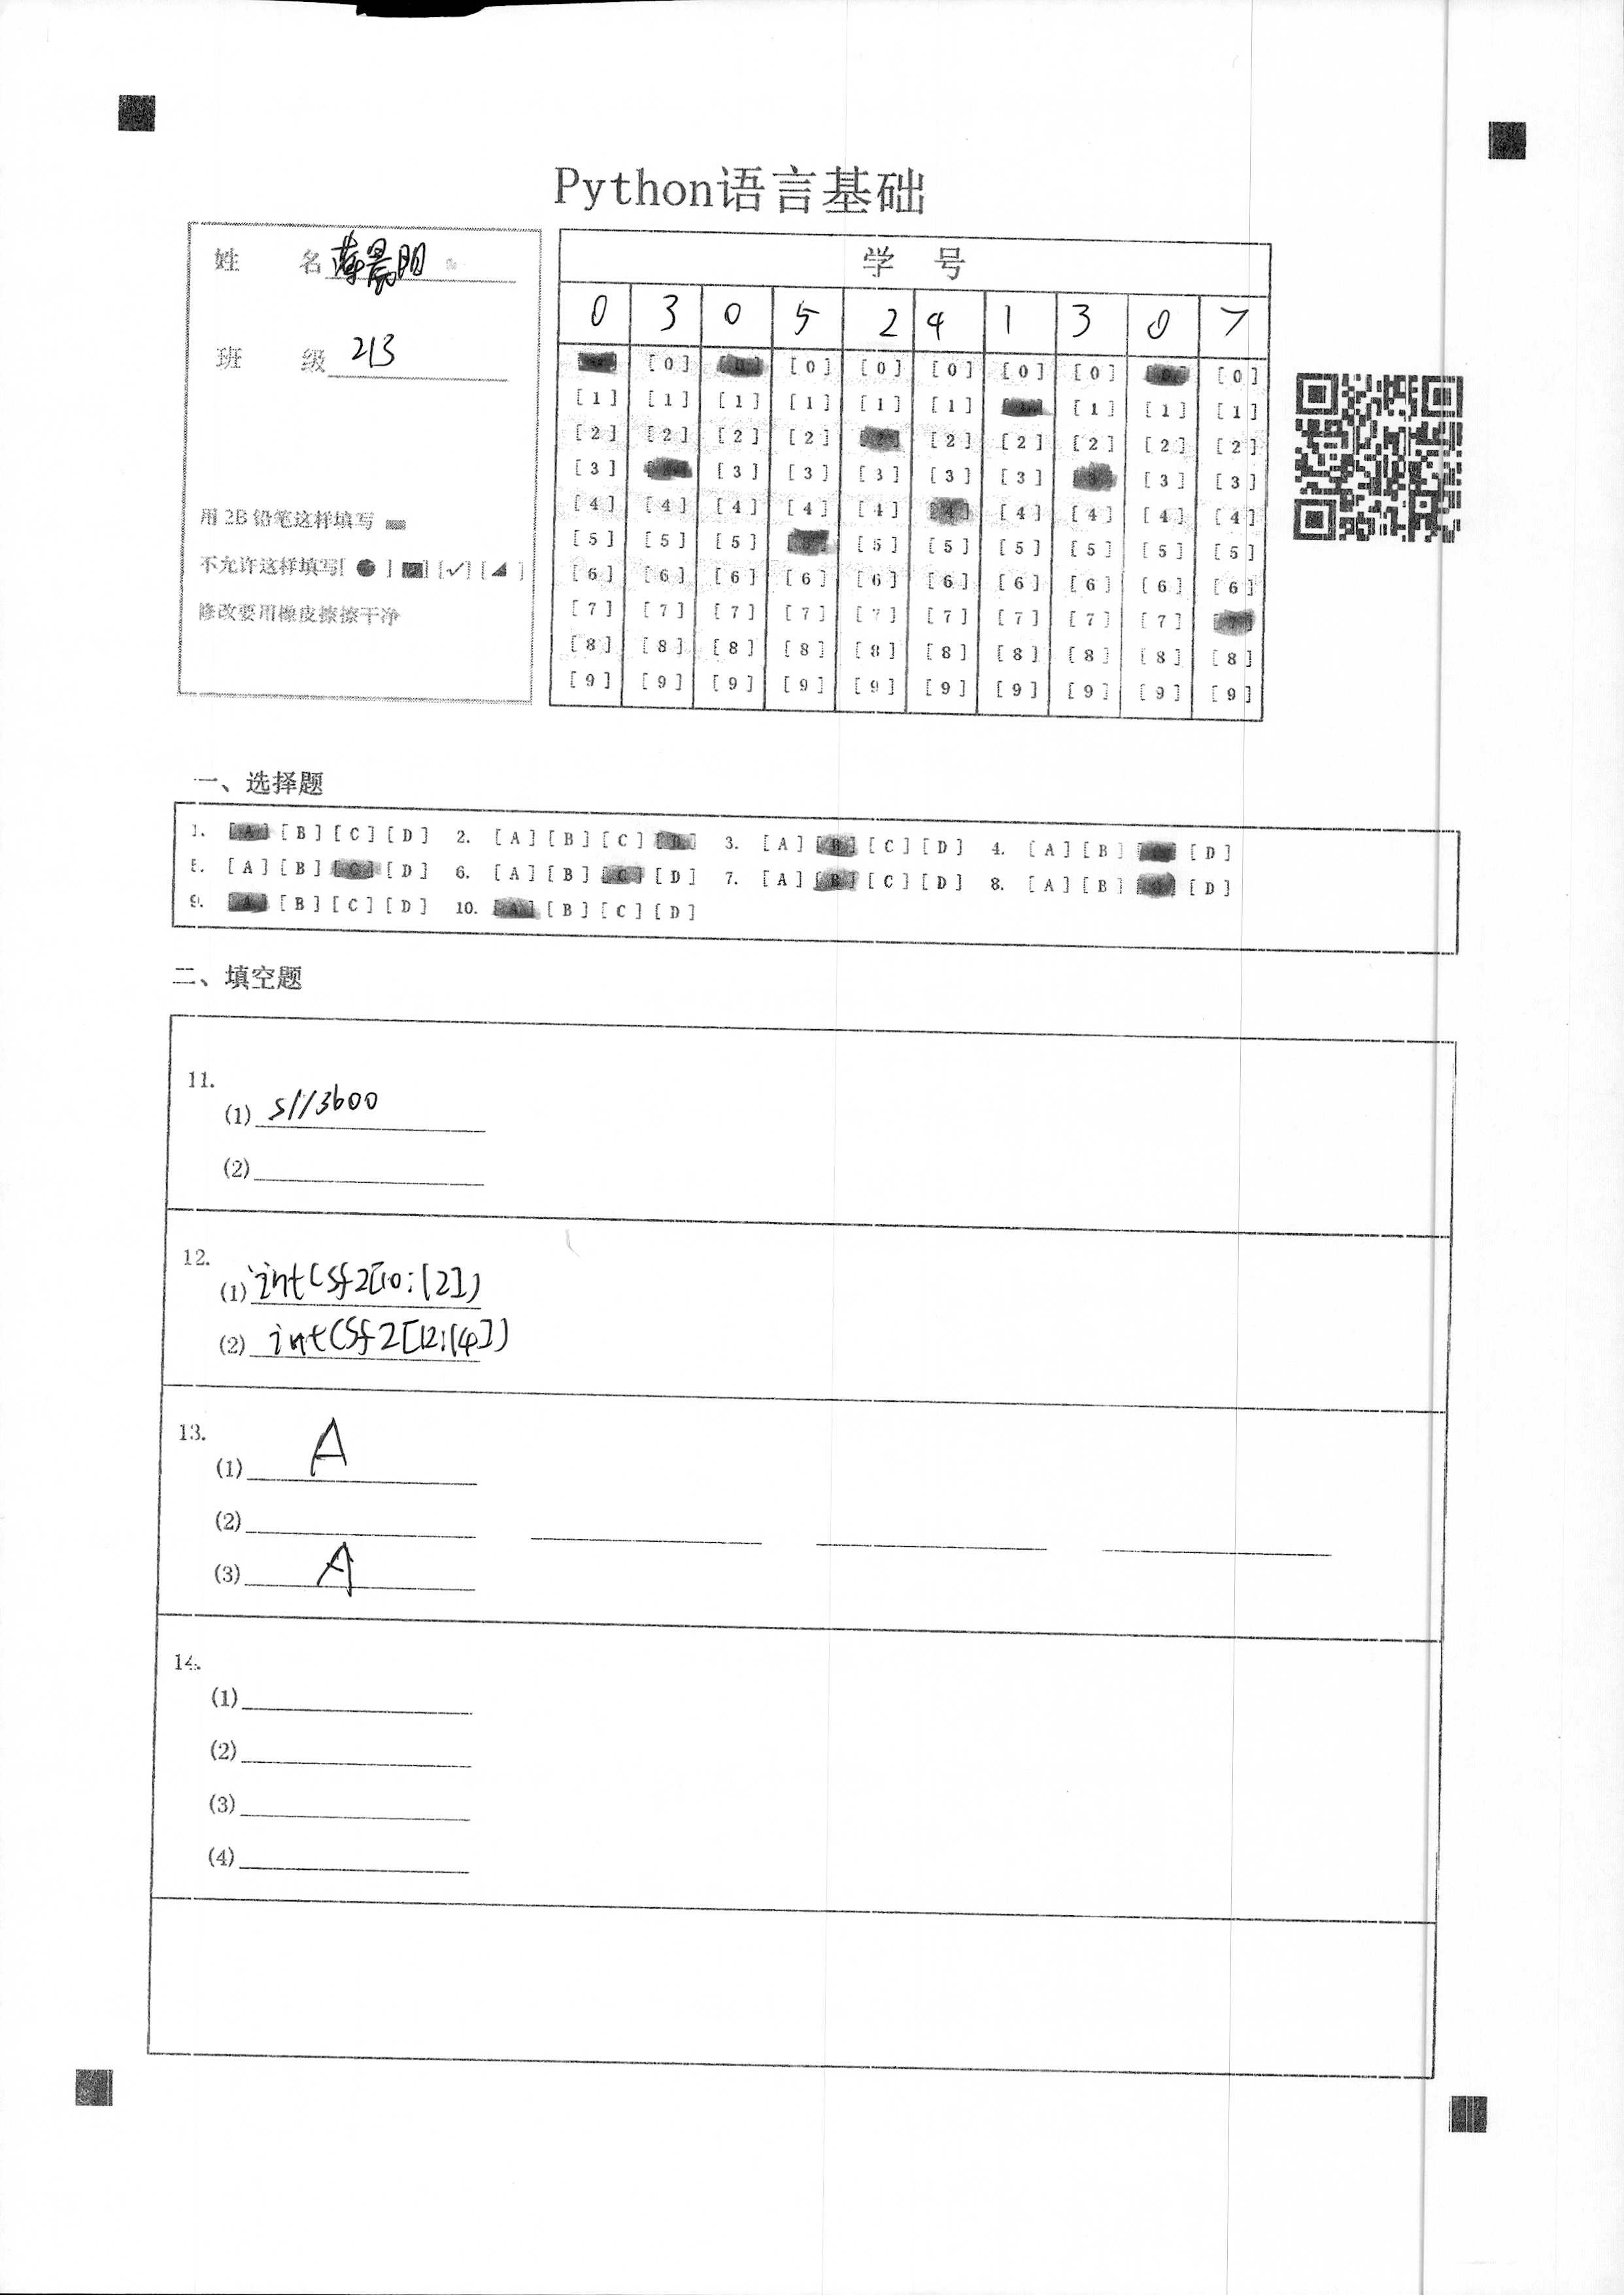 Python语言基础
姓 名
班 级 213
用 2B 铅笔这样填写
不允许这样填写[ ● ] [■] [✓] [◢ ]
修改要用橡皮擦擦干净
学 号
0 3 0 5 2 4 1 3 0 7
[0] [0] [0] [0] [0] [0] [0]
[1] [1] [1] [1] [1] [1] [1] [1] [1]
[2] [2] [2] [2] [2] [2] [2] [2] [2]
[3] [3] [3] [3] [3] [3] [3] [3]
[4] [4] [4] [4] [4] [4] [4] [4] [4] [4]
[5] [5] [5] [5] [5] [5] [5] [5] [5]
[6] [6] [6] [6] [6] [6] [6] [6] [6] [6]
[7] [7] [7] [7] [7] [7] [7] [7] [7] [7]
[8] [8] [8] [8] [8] [8] [8] [8] [8] [8]
[9] [9] [9] [9] [9] [9] [9] [9] [9] [9]
一、选择题
1. [A] [B] [C] [D] 2. [A] [B] [C] [D] 3. [A] [B] [C] [D] 4. [A] [B] [C] [D]
5. [A] [B] [C] [D] 6. [A] [B] [C] [D] 7. [A] [B] [C] [D] 8. [A] [B] [C] [D]
9. [A] [B] [C] [D] 10. [A] [B] [C] [D]
二、填空题
11.
(1) s//3600
(2)
12.
(1) int(sf2[10:12])
(2) int(sf2[12:14])
13.
(1) A
(2)
(3) A
14.
(1)
(2)
(3)
(4)